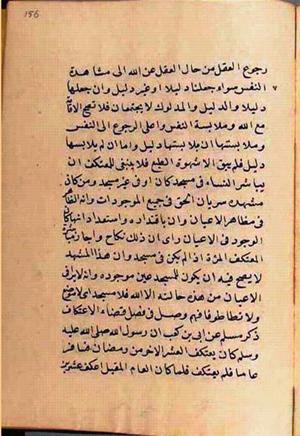 156
رجوع العقل من حال العقل عن الله الى مشاهدة
النفس سواء جعلنا دليلا او غير دليل وان جعلها
دليلا والدليل والمدلول لا يجتمعان فلا تصح الاقامة
مع الله وملابسة النفس واعلى الرجوع الى النفس
وملابستها ان يلابستها دليلا واما ان لم يلابسها
دليل فلم يبق الا شهوة الطبع فلا ينبغى للمعتكف ان
يباشر النساء فى مسجد كان او فى غير مسجد ومن كان
مشهده سريان الحق فى جميع الموجودات وانه الظاهر
فى مظاهر الاعيان وان باقتداره واستعداداتها كان
الوجود فى الاعيان راى ان ذلك نكاح واجاز مباشرة
المعتكف المرة اذا لم يكن فى مسجد وان هذا المشهد
لا يصح فيه ان يكون للمسجد عين موجوده وانه لا يرى فى
الاعيان من هذه حالته الا الله فلا مسجد اى لا موضع
ولا تطاطوا فافهم وصل فى فصل قضاء الاعتكاف
ذكر مسلم عن ابى بن كعب ان رسول الله صلى الله عليه
وسلم كان يعتكف العشر الاخر من رمضان فسافر
عاما فلم يعتكف فلما كان العام المقبل اعتكف عشرين